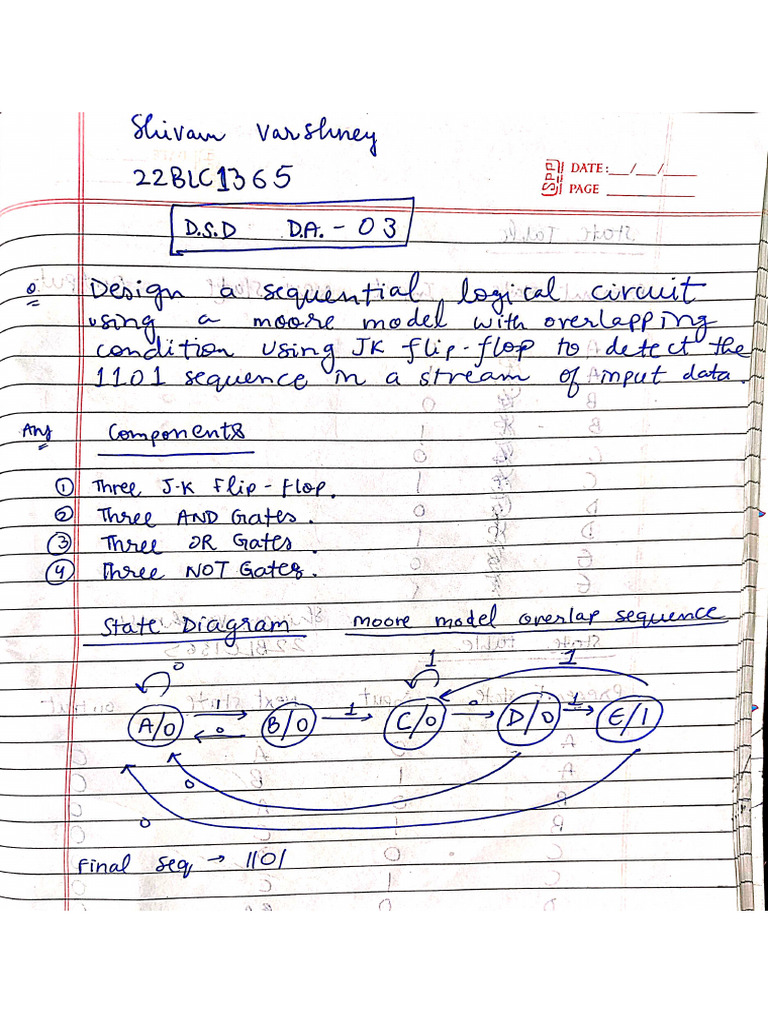 Shivam Varshney
22BLC1365
DATE:__/__/____
PAGE ________
D.S.D D.A. - 03
Q. Design a sequential logical circuit
using a moore model with overlapping
condition using JK flip-flop to detect the
1101 sequence in a stream of input data.
Ans Components
① Three J-K Flip-flop.
② Three AND Gates.
③ Three OR Gates.
④ Three NOT Gates.
State Diagram moore model overlap sequence
0 1 1
A/0 1 0 B/0 1 C/0 0 D/0 1 E/1
0
0
Final Seq → 1101